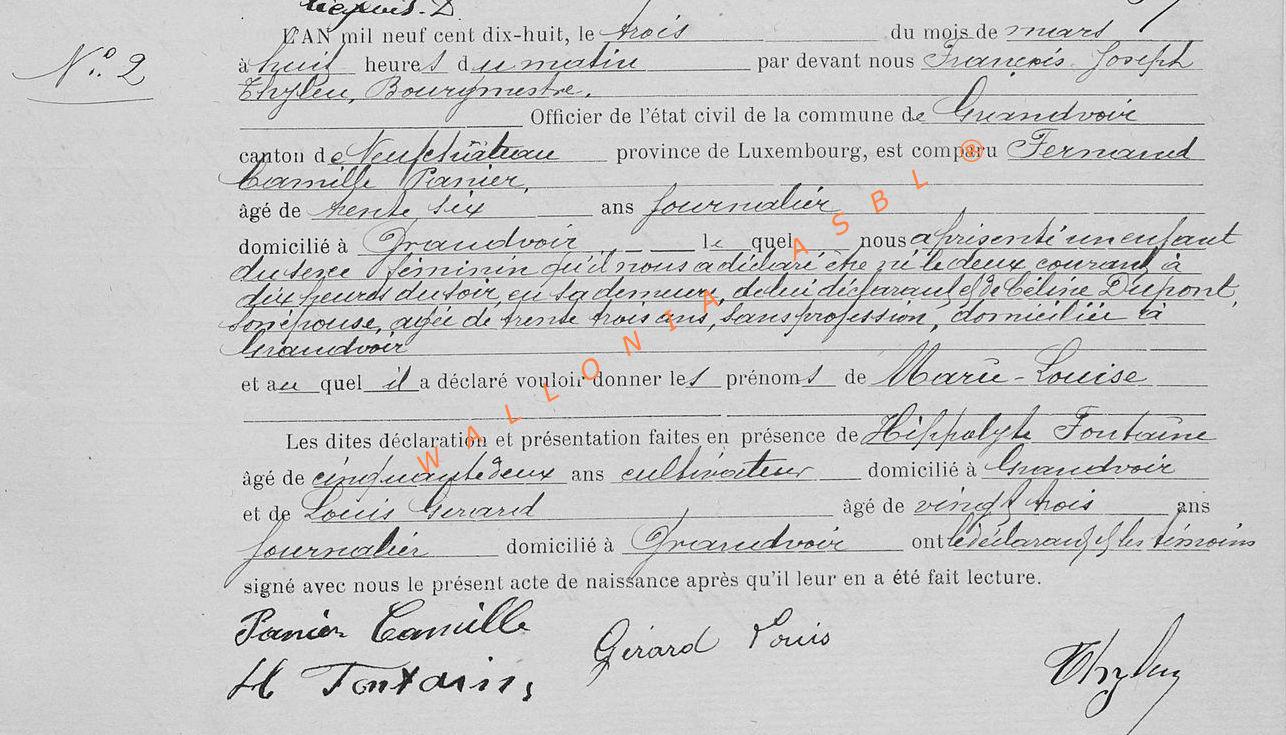 N° 2
L'AN mil neuf cent dix-huit, le trois du mois de mars
à huit heures du matin par devant nous François Joseph
Thyleu, Bourgmestre,
Officier de l'état civil de la commune de Grandvoir
canton de Neufchâteau province de Luxembourg, est comparu Fernand
Camille Panier,
âgé de trente six ans journalier
domicilié à Grandvoir lequel nous a présenté un enfant
du sexe féminin qu'il nous a déclaré être né le deux courant à
dix heures du soir, en sa demeure, de lui déclarant et de Céline Dupont,
son épouse, agée de trente trois ans, sans profession, domiciliée à
Grandvoir
et au quel il a déclaré vouloir donner les prénoms de Marie-Louise
Les dites déclaration et présentation faites en présence de Hippolyte Fontaine
âgé de cinquante deux ans cultivateur domicilié à Grandvoir
et de Louis Gerard âgé de vingt trois ans
journalier domicilié à Grandvoir ont le déclarant et les témoins
signé avec nous le présent acte de naissance après qu'il leur en a été fait lecture.
Panier Camille
Gérard Louis
H Fontaine
WALLONIA ASBL ®